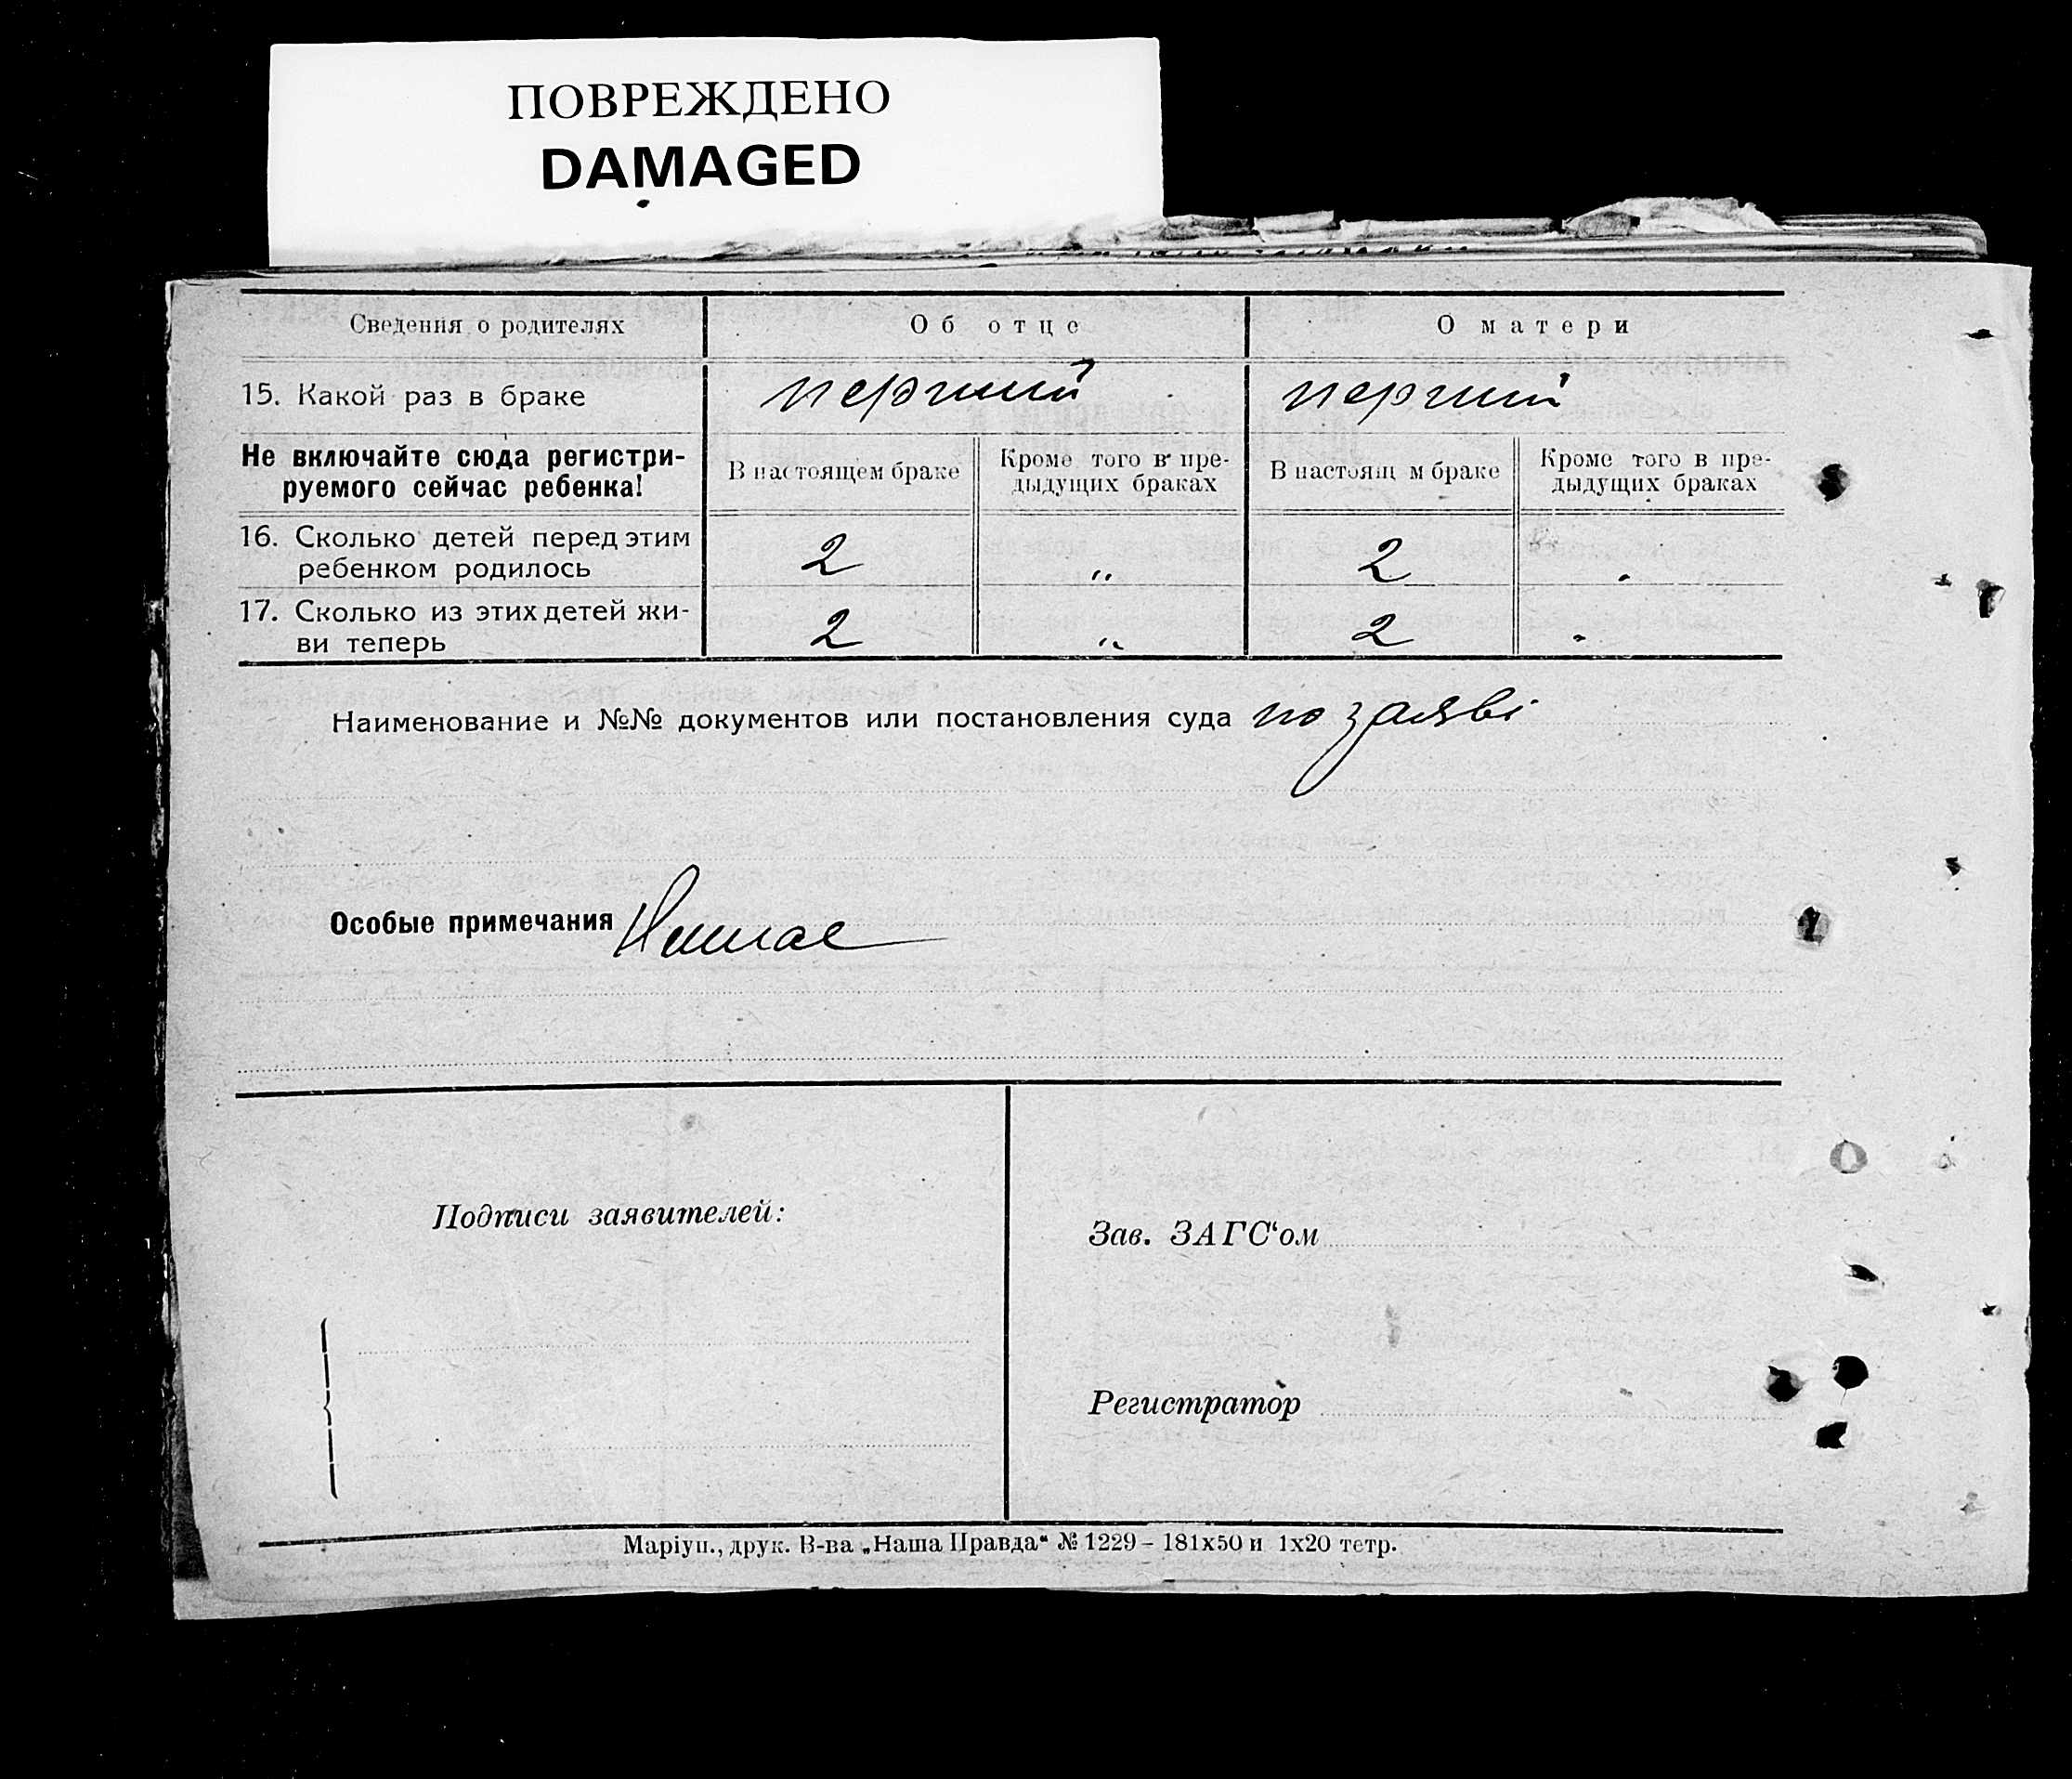 ПОВРЕЖДЕНО
DAMAGED
Сведения о родителях Об отце О матери
15. Какой раз в браке перший перший
Не включайте сюда регистри-
руемого сейчас ребенка!
В настоящем браке
Кроме того в пре-
дыдущих браках
В настоящ м браке
Кроме того в пре-
дыдущих браках
16. Сколько детей перед этим
ребенком родилось 2 „ 2 .
17. Сколько из этих детей жи-
ви теперь 2 „ 2 .
Наименование и №№ документов или постановления суда по заяві
Особые примечания Немає
Подписи заявителей:
Зав. ЗАГС‘ом
Регистратор
Маріуп., друк. В-ва „Наша Правда“ № 1229 – 181х50 и 1х20 тетр.